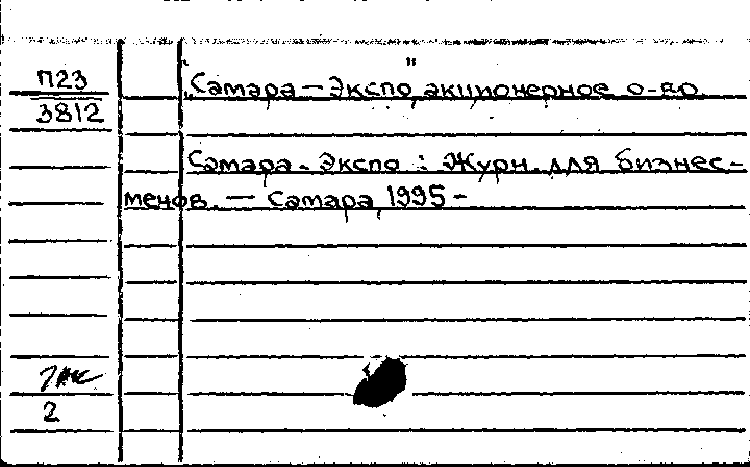 П23
3812
"Самара-Экспо", акционерное о-во.
Самара-Экспо : Журн. для бизнес-
менов. — Самара, 1995 -
2